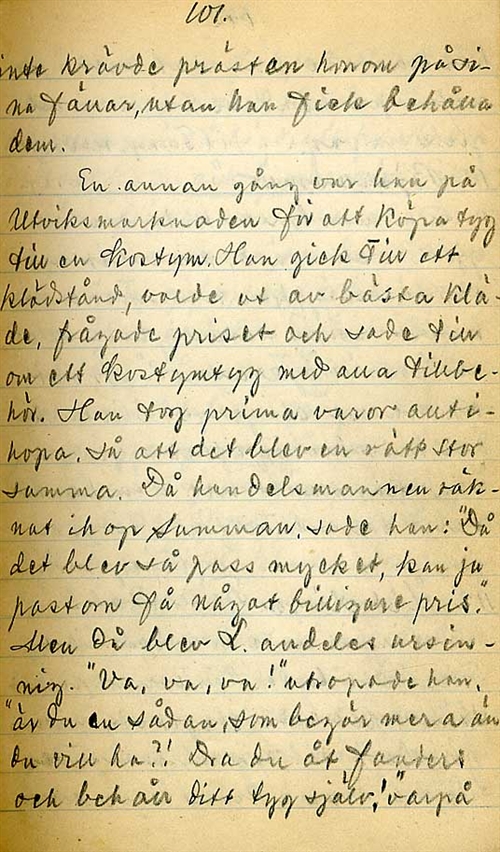 101.
inte krävde prästen honom på si-
na fåuar, utan han fick behålla
dem.
En annan gång var han på
Utviksmarknaden för att köpa tyg
till en kostym. Han gick till ett
klädstånd, valde ut av bästa klä-
de, frågade priset och sade till
om ett kostymtyg med alla tillbe-
hör. Han tog prima varor allti-
hopa, så att det blev en rätt stor
summa. Då handelsmannen räk-
nat ihop summan, sade han: "Då
det blev så pass mycket, kan ju
pastorn få något billigare pris."
Men då blev L. alldeles ursin-
nig. "Va, va, va!" utropade han,
"är du en sådan, som begär mera än
du vill ha?! Dra du åt fanders
och behåll ditt tyg själv!", varpå